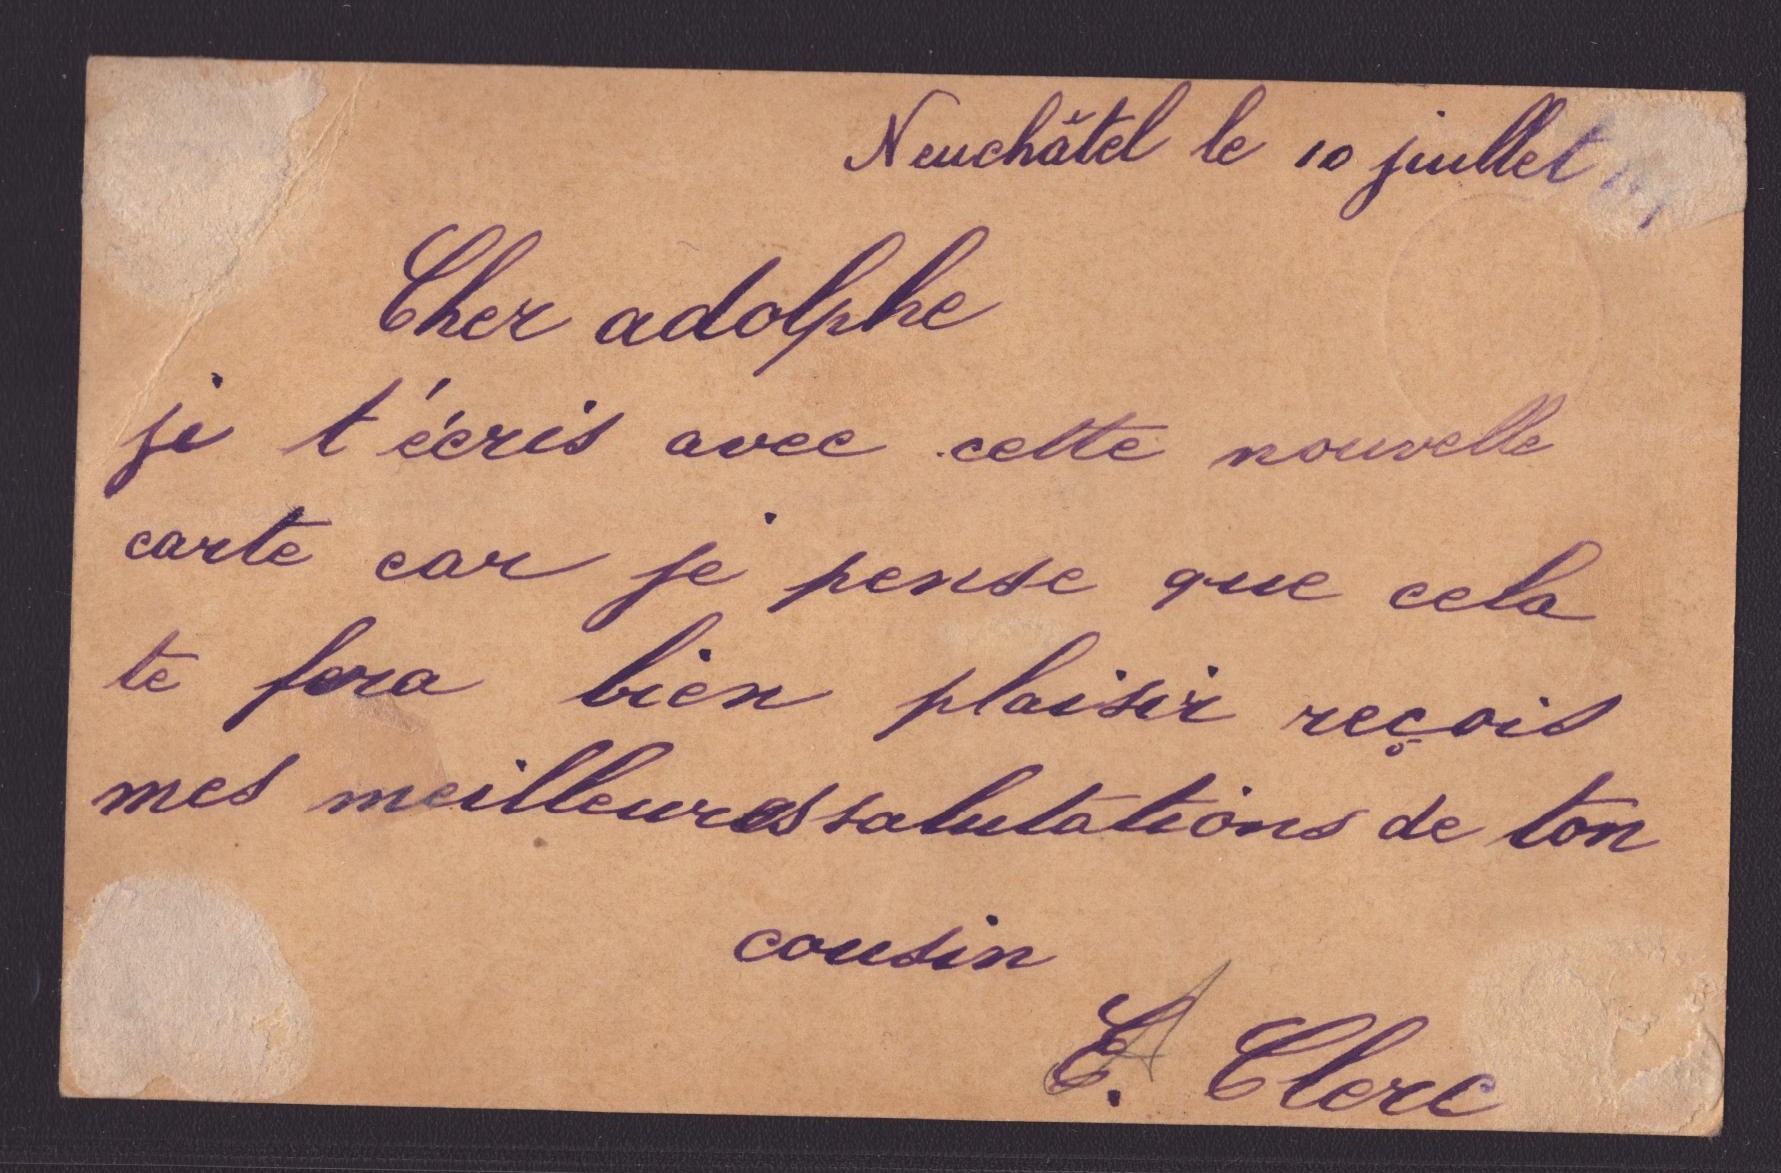 Neuchâtel le 10 juillet
Cher adolphe
je t'écris avec cette nouvelle
carte car je pense que cela
te fera bien plaisir reçois
mes meilleures salutations de ton
cousin
E. Clerc